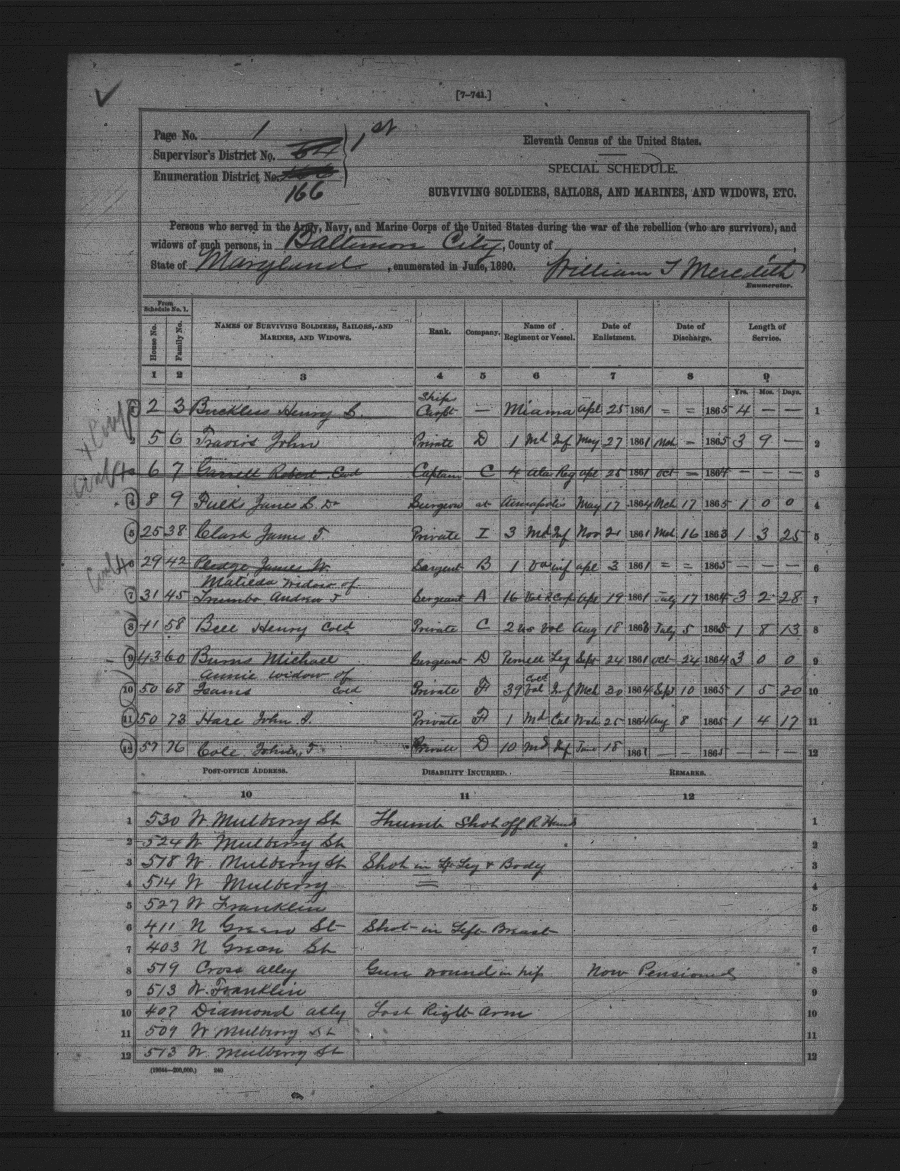 [7-741.]
Page No. 1
Supervisor's District No. 1st
Enumeration District No. 166
Eleventh Census of the United States.
SPECIAL SCHEDULE.
SURVIVING SOLDIERS, SAILORS, AND MARINES, AND WIDOWS, ETC.
Persons who served in the Army, Navy, and Marine Corps of the United States during the war of the rebellion (who are survivors), and
widows of such persons, in Baltimore City, County of
State of Maryland, enumerated in June, 1890. William T Meredith
Enumerator.
From Schedule No. 1.
House No. Family No. NAMES OF SURVIVING SOLDIERS, SAILORS, AND MARINES, AND WIDOWS. Rank. Company. Name of Regiment or Vessel. Date of Enlistment. Date of Discharge. Length of Service.
1 2 3 4 5 6 7 8 9
Yrs. Mos. Days.
1 2 3 Buckless Henry S. Ship Carpt — Miama Apl 25 1861 = = 1865 4 — — 1
2 5 6 Travis John Private D 1 Md Inf May 27 1861 Mch — 1865 3 9 — 2
6 7 Garrett Robert Cold Captain C 4 Reg Apl 25 1861 Oct — 1864 — — — 3
4 8 9 Fulk James S. Dr Surgeon at Annapolis May 17 1864 Mch 17 1865 1 0 0 4
5 25 38 Clark James T. Private I 3 Md Inf Nov 21 1861 Mch 16 1863 1 3 25 5
29 42 Pledge James W. Sargent B 1 Va inf Apl 3 1861 = = 1865 — — — 6
Matilda widow of
7 31 45 Trumbo Andrew J Sergeant A 16 Corps Sept 19 1861 July 17 1864 3 2 28 7
8 41 58 Bell Henry Cold Private C 2 Vol Aug 18 1863 July 5 1865 1 8 13 8
9 43 60 Burns Michael Surgeant D Purnell Leg Sept 24 1861 Oct 24 1864 3 0 0 9
Annie widow of
10 50 68 Isams Cold Private F 39 Cold Vol Inf Mch 30 1864 Sept 10 1865 1 5 20 10
11 50 73 Hare John A. Private F 1 Md Cal 25 1864 Aug 8 1865 1 4 17 11
12 57 76 Cole John T Private D 10 Md Inf June 18 1861 — — 1865 — — — 12
POST-OFFICE ADDRESS. DISABILITY INCURRED. REMARKS.
10 11 12
1 530 W Mulberry St Thumb Shot off R Hand 1
2 524 W Mulberry St 2
3 518 W. Mulberry St Shot in Lf Leg & Body 3
4 514 W Mulberry 4
5 527 W Franklin 5
6 411 N Green St Shot in Left Breast 6
7 403 N Green St 7
8 519 Cross alley Gun wound in hip Now Pensioned 8
9 513 W. Franklin 9
10 407 Diamond ally Lost Right Arm 10
11 509 W Mulberry St 11
12 513 W. Mulberry St 12